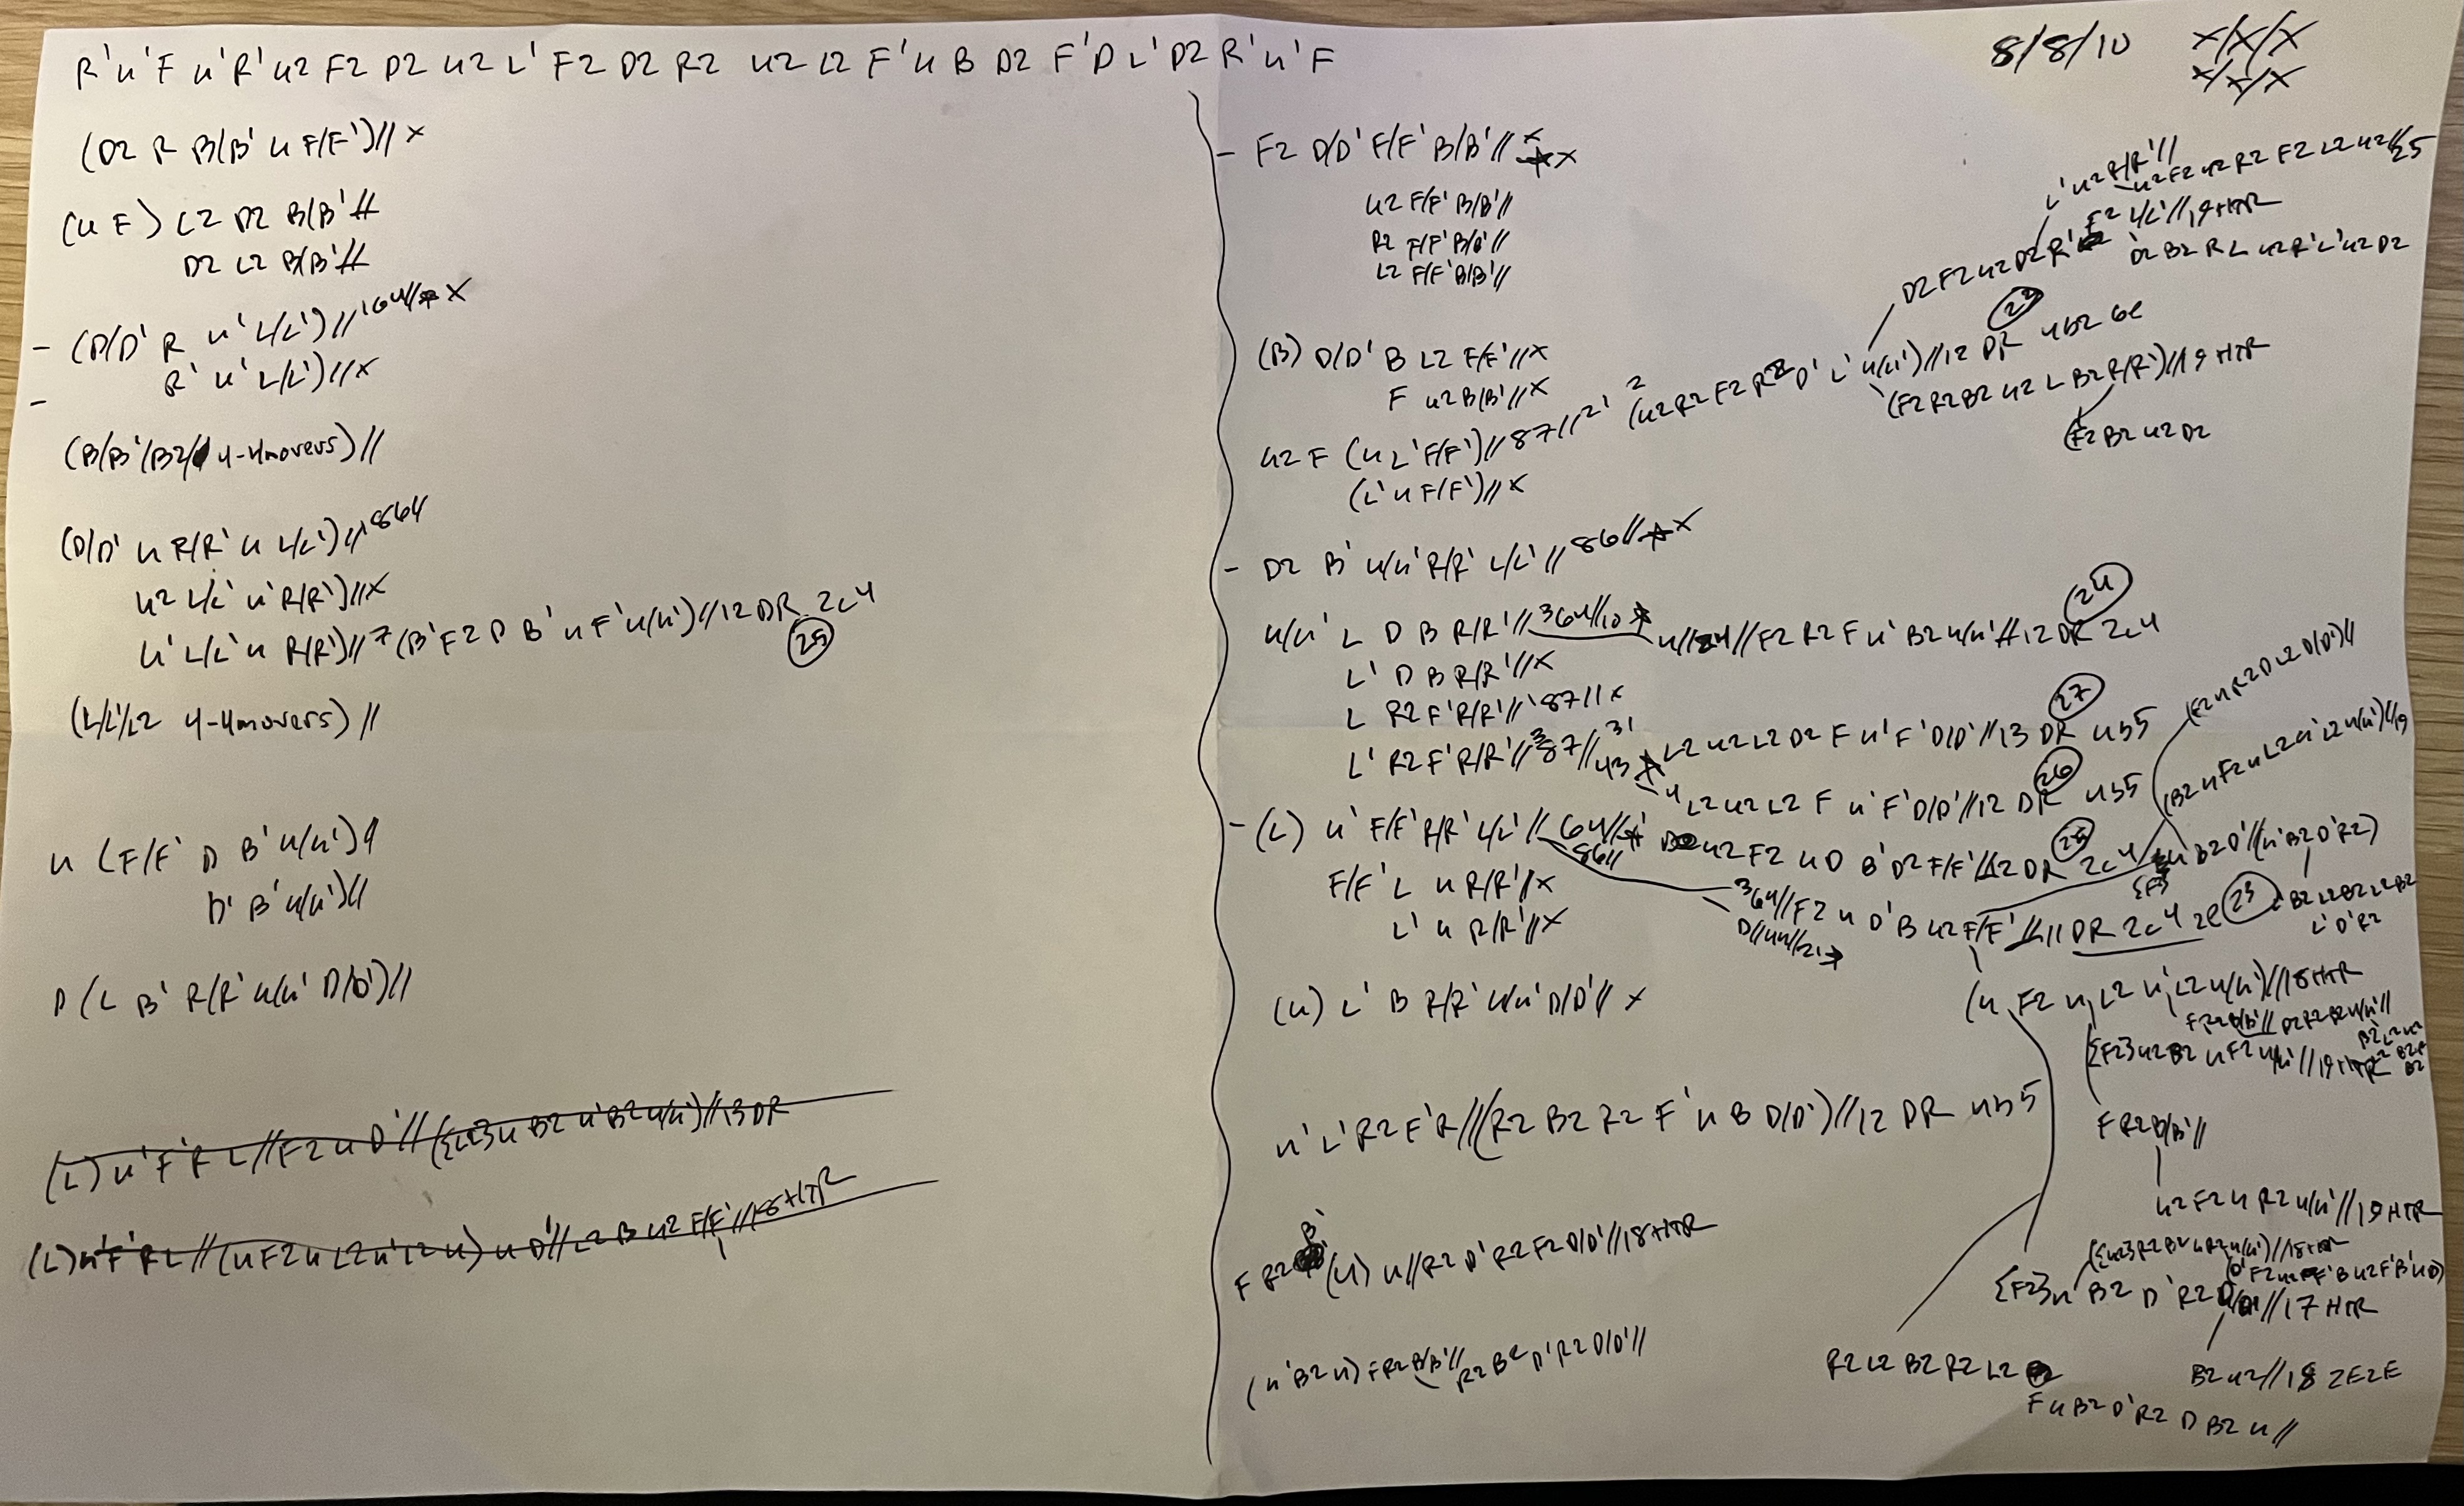 R' u' F u' R' u2 F2 D2 u2 L' F2 D2 R2 u2 L2 F' u B D2 F' D L' D2 R' u' F
8/8/10 x/x/x
x/x/x
(D2 R B/B' u F/F')// x
(u F) L2 D2 B/B' //
D2 L2 B/B' //
- (D/D' R u' L/L')// x
R' u' L/L')// x
-
(B/B'/B2/ 4-4movers)//
(D/D' u R/R' u L/L')// 864
u2 L/L' u' R/R')// x
u' L/L' u R/R')// 7 (B' F2 D B' u F' u/u')//12 DR 2c4
25
(L/L'/L2 4-4movers)//
u (F/F' D B' u/u')
D' B' u/u')//
D (L B' R/R' u/u' D/D')//
(L) u' F' R L//F2 u D'//({L2} u B2 u' B2 u/u')//13 DR
(L) u' F' R L//(u F2 u L2 u' L2 u) u D'//L2 B u2 F/F'//18 HTR
- F2 D/D' F/F' B/B'// x
u2 F/F' B/B'//
R2 F/F' B/B'//
L2 F/F' B/B'//
(B) D/D' B L2 F/F'// x
F u2 B/B'// x
u2 F (u L' F/F')//87//2' (u2 R2 F2 R2 D' L' u/u')//12 DR 4b2 6e
(L' u F/F')// x
L' u2 R/R'//
u2 F2 u2 R2 F2 L2 u2//25
D2 F2 u2 D2 R' F2 L/L'//19 HTR
D2 B2 R L u2 R' L' u2 D2
(F2 R2 B2 u2 L B2 R/R')//19 HTR
(F2 B2 u2 D2
- D2 B' u/u' R/R' L/L'//86// x
u/u' L D B R/R'//364//10 u//84//F2 R2 F u' B2 u/u'//12 DR 2c4
24
L' D B R/R'// x
L R2 F' R/R'//87// x
L' R2 F' R/R'//87// 43 L2 u2 L2 D2 F u' F' D/D'//13 DR 4b5
27
4 L2 u2 L2 F u' F' D/D'//12 DR 4b5
26
- (L) u' F/F' R/R' L/L'//64// u2 F2 u D B' D2 F/F'//12 DR 2c4
25
86//
F/F' L u R/R'// x
L' u R/R'// x
364//F2 u D' B u2 F/F'//11 DR 2c4 2e
23
D//44//21
(F2 u R2 D L2 D/D')//
(B2 u F2 u L2 u' L2 u/u')//19
u' B2 D'//(u' B2 D' R2)
B2 L2 B2 L2 B2
L' D' R2
(u) L' B R/R' u/u' D/D'// x
(u F2 u L2 u' L2 u/u')//18 HTR
F R2 B/B'// D2 R2 B2 u/u'//
{F2} u2 B2 u F2 u/u'//19 HTR
F R2 B/B'//
u2 F2 u R2 u/u'//19 HTR
u' L' R2 F' R//(R2 B2 R2 F' u B D/D')//12 DR 4b5
F R2 B' (u) u//R2 D' R2 F2 D/D'//18 HTR
({u2} R2 B2 u R2 u/u')//18 HTR
{F2} u' B2 D' R2 D/D'//17 HTR
B2 u2//18 2E2E
(u' B2 u) F R2 B/B'// R2 B2 D' R2 D/D'//
R2 L2 B2 R2 L2
F u B2 D' R2 D B2 u//